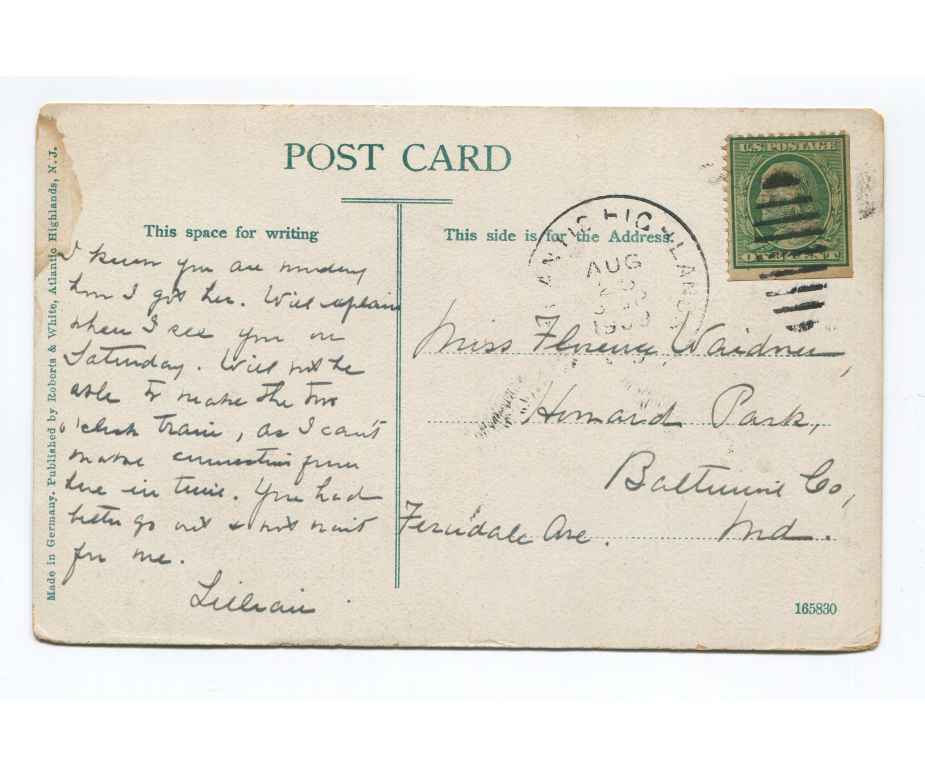 POST CARD
This space for writing
This side is for the Address.
Made in Germany. Published by Roberts & White, Atlantic Highlands, N. J.
I know you are
how I got her. Will explain
when I see you on
Saturday. Will not be
able to make the two
o'clock train, as I can't
make connection from
here in time. You had
better go out & not wait
for me.
Lillian
U.S. POSTAGE
HIGHLANDS
AUG
1909
Miss Florence
Howard Park,
Baltimore Co,
Ferndale Ave. Md.
165830